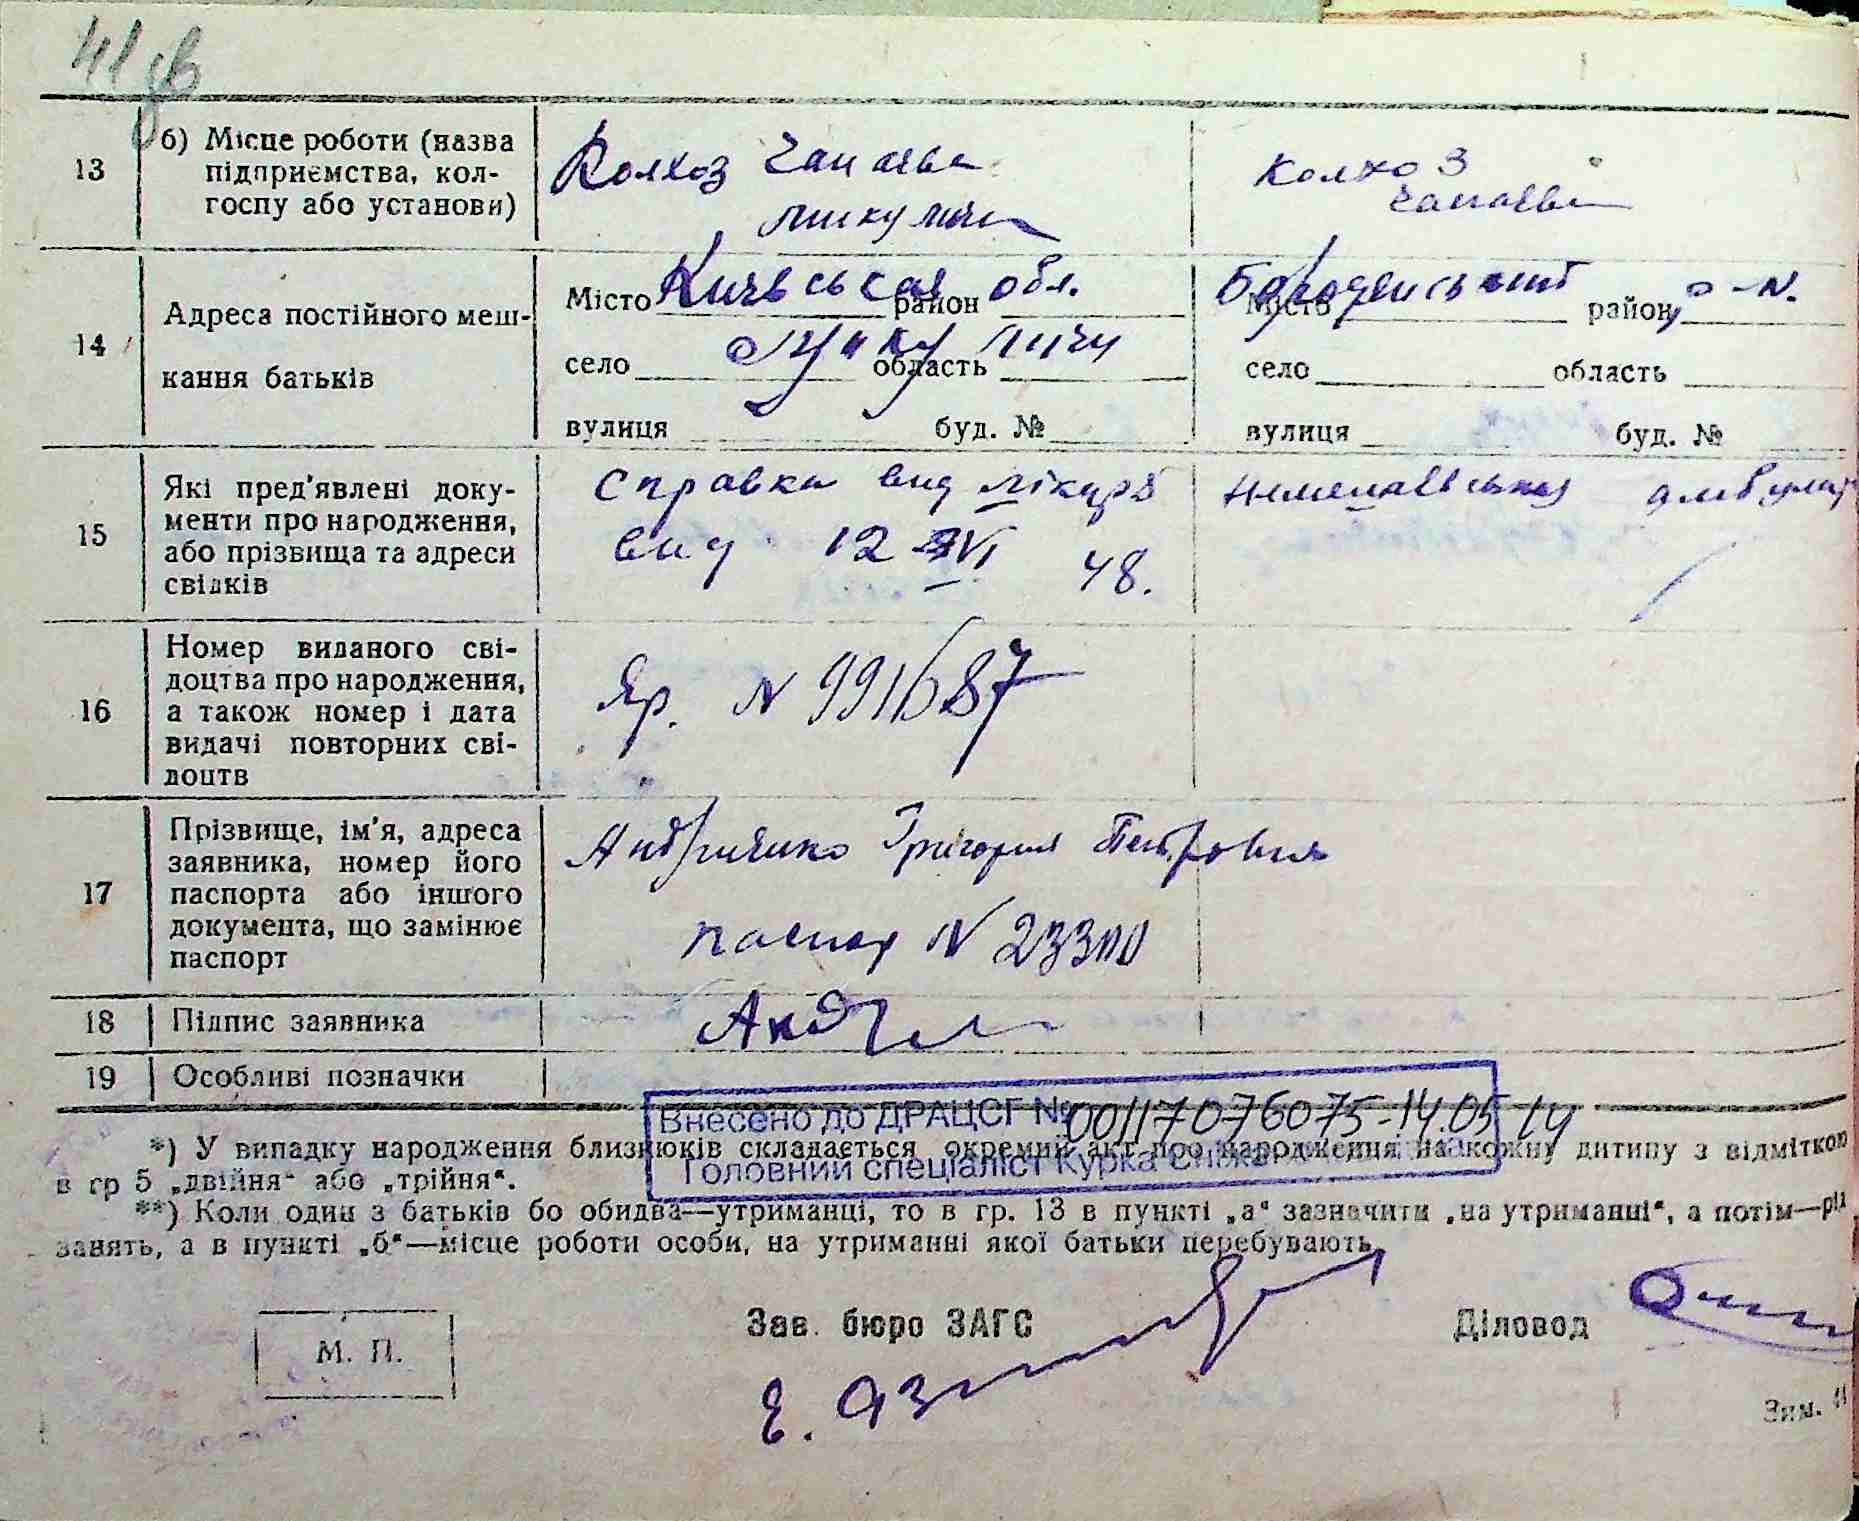 41 зв
13
б) Місце роботи (назва
підприємства, кол-
госпу або установи)
Колхоз Чапаєва
Микуличи
Колхоз
Чапаєва
14
Адреса постійного меш-
кання батьків
Місто Киевськая район обл.
село Микуличи область
вулиця буд. №
Місто Бородянський район р-н.
село область
вулиця буд. №
15
Які пред'явлені доку-
менти про народження,
або прізвища та адреси
свідків
Справка вид лікарь
вид 12 VI 48.
16
Номер виданого сві-
доцтва про народження,
а також номер і дата
видачі повторних сві-
доцтв
Яр. N 991687
17
Прізвище, ім'я, адреса
заявника, номер його
паспорта або іншого
документа, що замінює
паспорт
Григория Петровия
паспор N 23300
18
Підпис заявника
19
Особливі позначки
Внесено до ДРАЦСГ № 00117076075-14.05 14
Головний спеціаліст Курка
*) У випадку народження близнюків складається окремий акт про народження на кожну дитину з відміткою
в гр 5 „двійня“ або „трійня“.
**) Коли один з батьків бо обидва—утриманці, то в гр. 13 в пункті „а“ зазначити „на утриманні“, а потім—рід
занять, а в пункті „б“—місце роботи особи, на утриманні якої батьки перебувають
Зав. бюро ЗАГС
Діловод
М. П.
Зим.